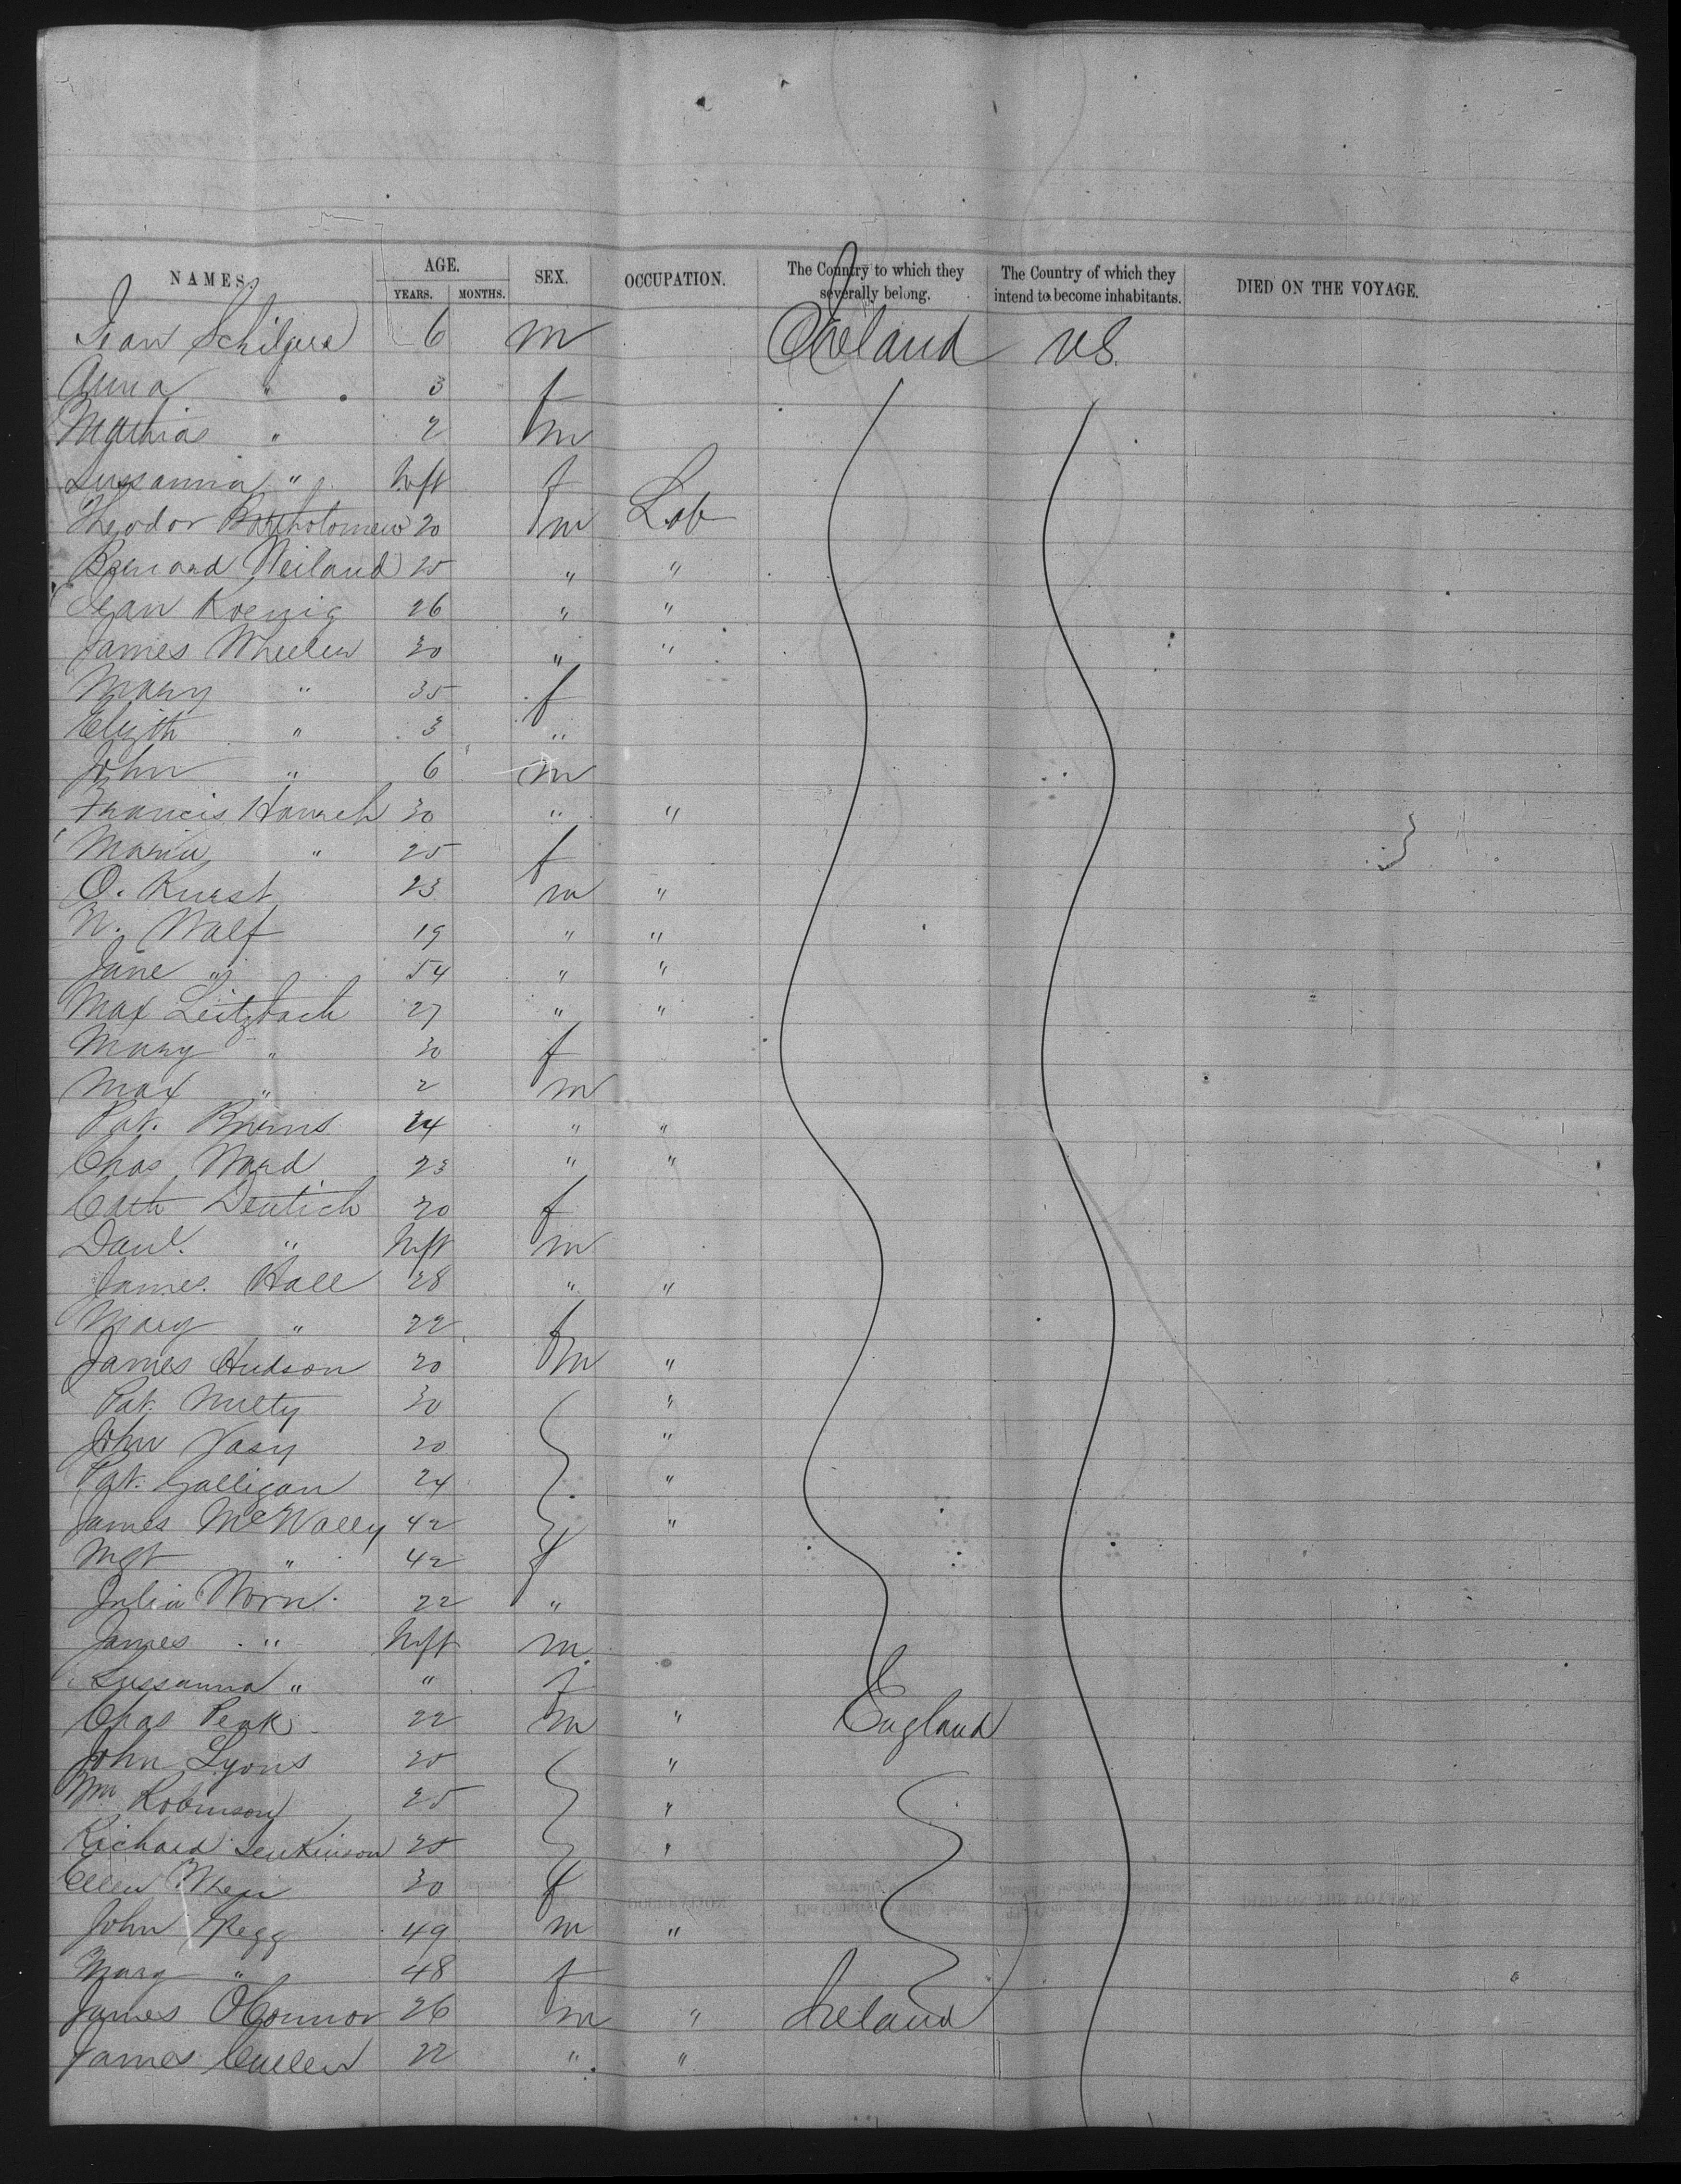 NAMES. AGE. SEX. OCCUPATION. The Country to which they severally belong. The Country of which they intend to become inhabitants. DIED ON THE VOYAGE.
YEARS. MONTHS.
Jean Schilgers 6 m Ireland US.
Anna " 3 f
Mathias " 2 m
Sussanna " Inft f
Theodor Bartholomew 20 m Lab
Bernard Weiland 25 " "
Jean Koenig 26 " "
James Wheelen 30 " "
Mary " 35 f
Elizth " 3 "
John " 6 m
Francis 30 " "
Maria " 25 f
O. Kurst 23 m "
N. Walf 19 " "
Jane " 54 " "
Max Leitzbach 27 " "
Mary " 30 f
Max " 2 m
Pat. Burns 24 " "
Chas Ward 23 " "
Cath Deutich 20 f
Danl. " Inft m
James Hall 28 " "
Mary " 22 f
James Hudson 20 m "
Pat. Nulty 30 "
John Vasy 20 "
Pat. Galligan 24 "
James McNally 42 "
Mgt " 42 f
Julia Worn 22 "
James " Inft m.
Sussanna " " f
Chas Peak 22 m " England
John Lyons 25 "
Wm Robinson 25 "
Richard Jenkinson 25 "
Ellen 30 f
John Kegg 49 m "
Mary " 48 f
James O'Connor 26 m " Ireland
James Cullen 22 " "